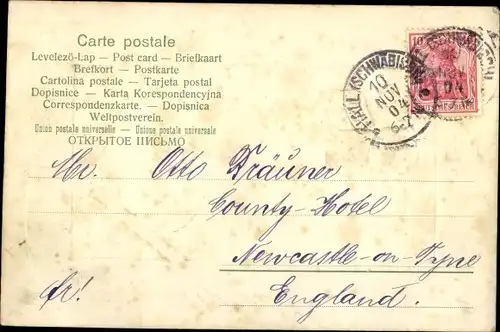 Carte postale
Levelező-Lap — Post card — Briefkaart
Brefkort — Postkarte
Cartolina postale — Tarjeta postal
Dopisnice - Karta Korespondencyjna
Correspondenzkarte. — Dopisnica
Weltpostverein.
Union postale universelle — Unione postale universale
ОТКРЫТОЕ ПИСЬМО
HALL (SCHWÄBISCH
10
NOV
04
6-7
10
Mr. Otto Bräuner
County-Hotel
Newcastle-on-Tyne
fr! England.